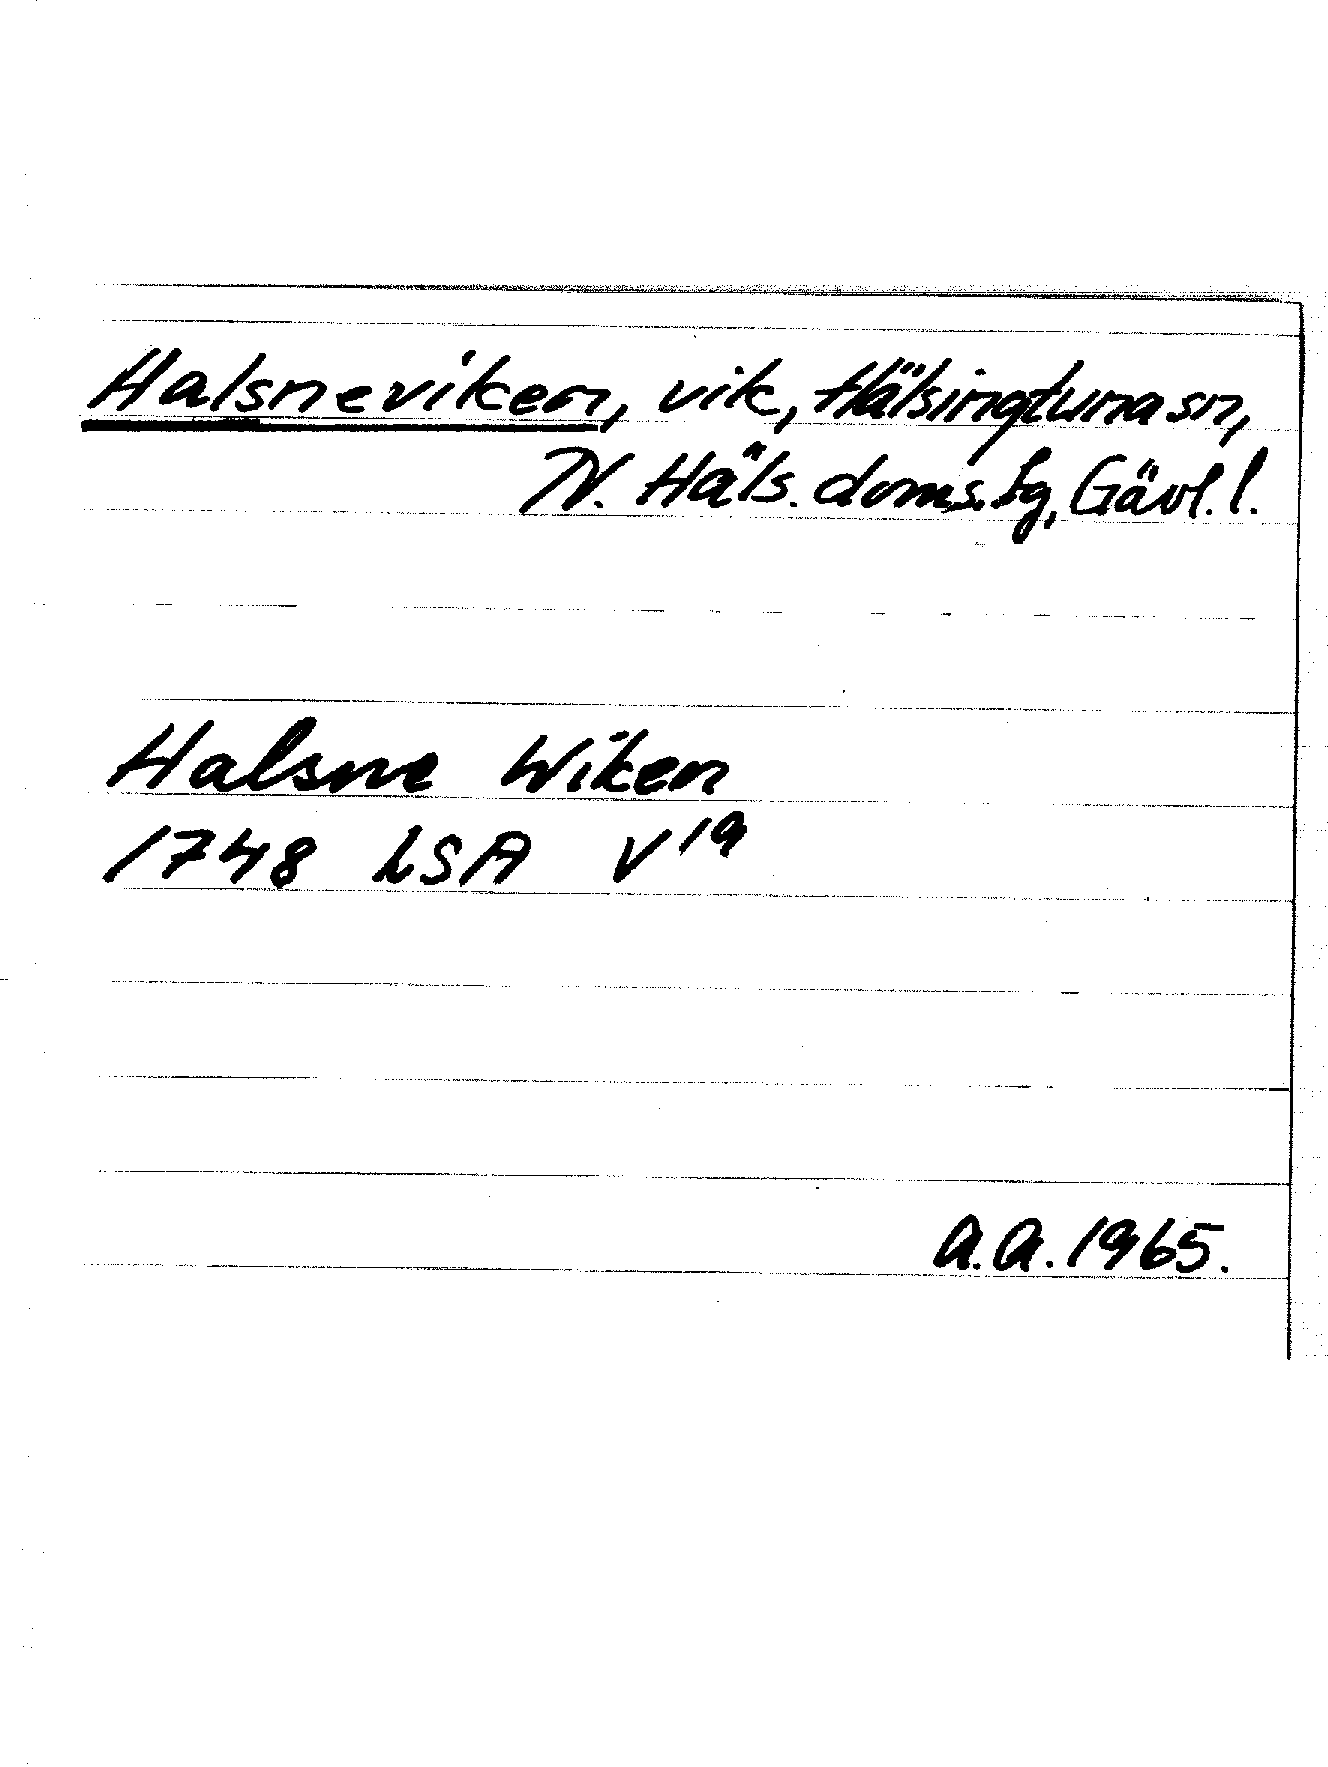 Halsneviken, vik, Hälsingtuna sn,
N. Häls. doms. sg, Gävl. l.
Halsne Wiken
1748 LSA V¹⁹
A.A. 1965.